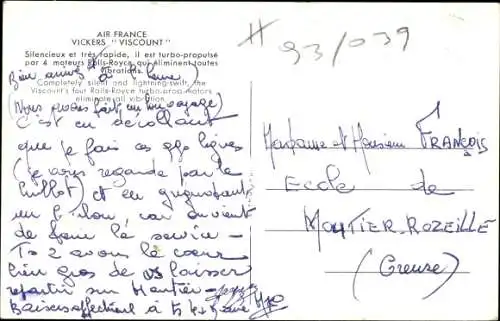 AIR FRANCE
VICKERS "VISCOUNT"
Silencieux et très rapide, il est turbo-propulsé
par 4 moteurs Rolls-Royce qui éliminent toutes
vibrations.
Completely silent and lightning-swift, the
Viscount's four Rolls-Royce turbo-prop motors
eliminate all vibration.
93/039
Bien à l'heure)
(Nous avons fait un bon voyage)
C'est en décollant
que je fais ces lignes
(je vous regarde par le
hublot) et en
un, car on vient
de faire le service -
Ts 2 avons le cœur
bien gros de vs laisser
repartir sur Moutier
Baisers affectueux à ts
Madame et Monsieur FRANÇOIS
Ecole de
MOUTIER-ROZEILLE
(Creuse)